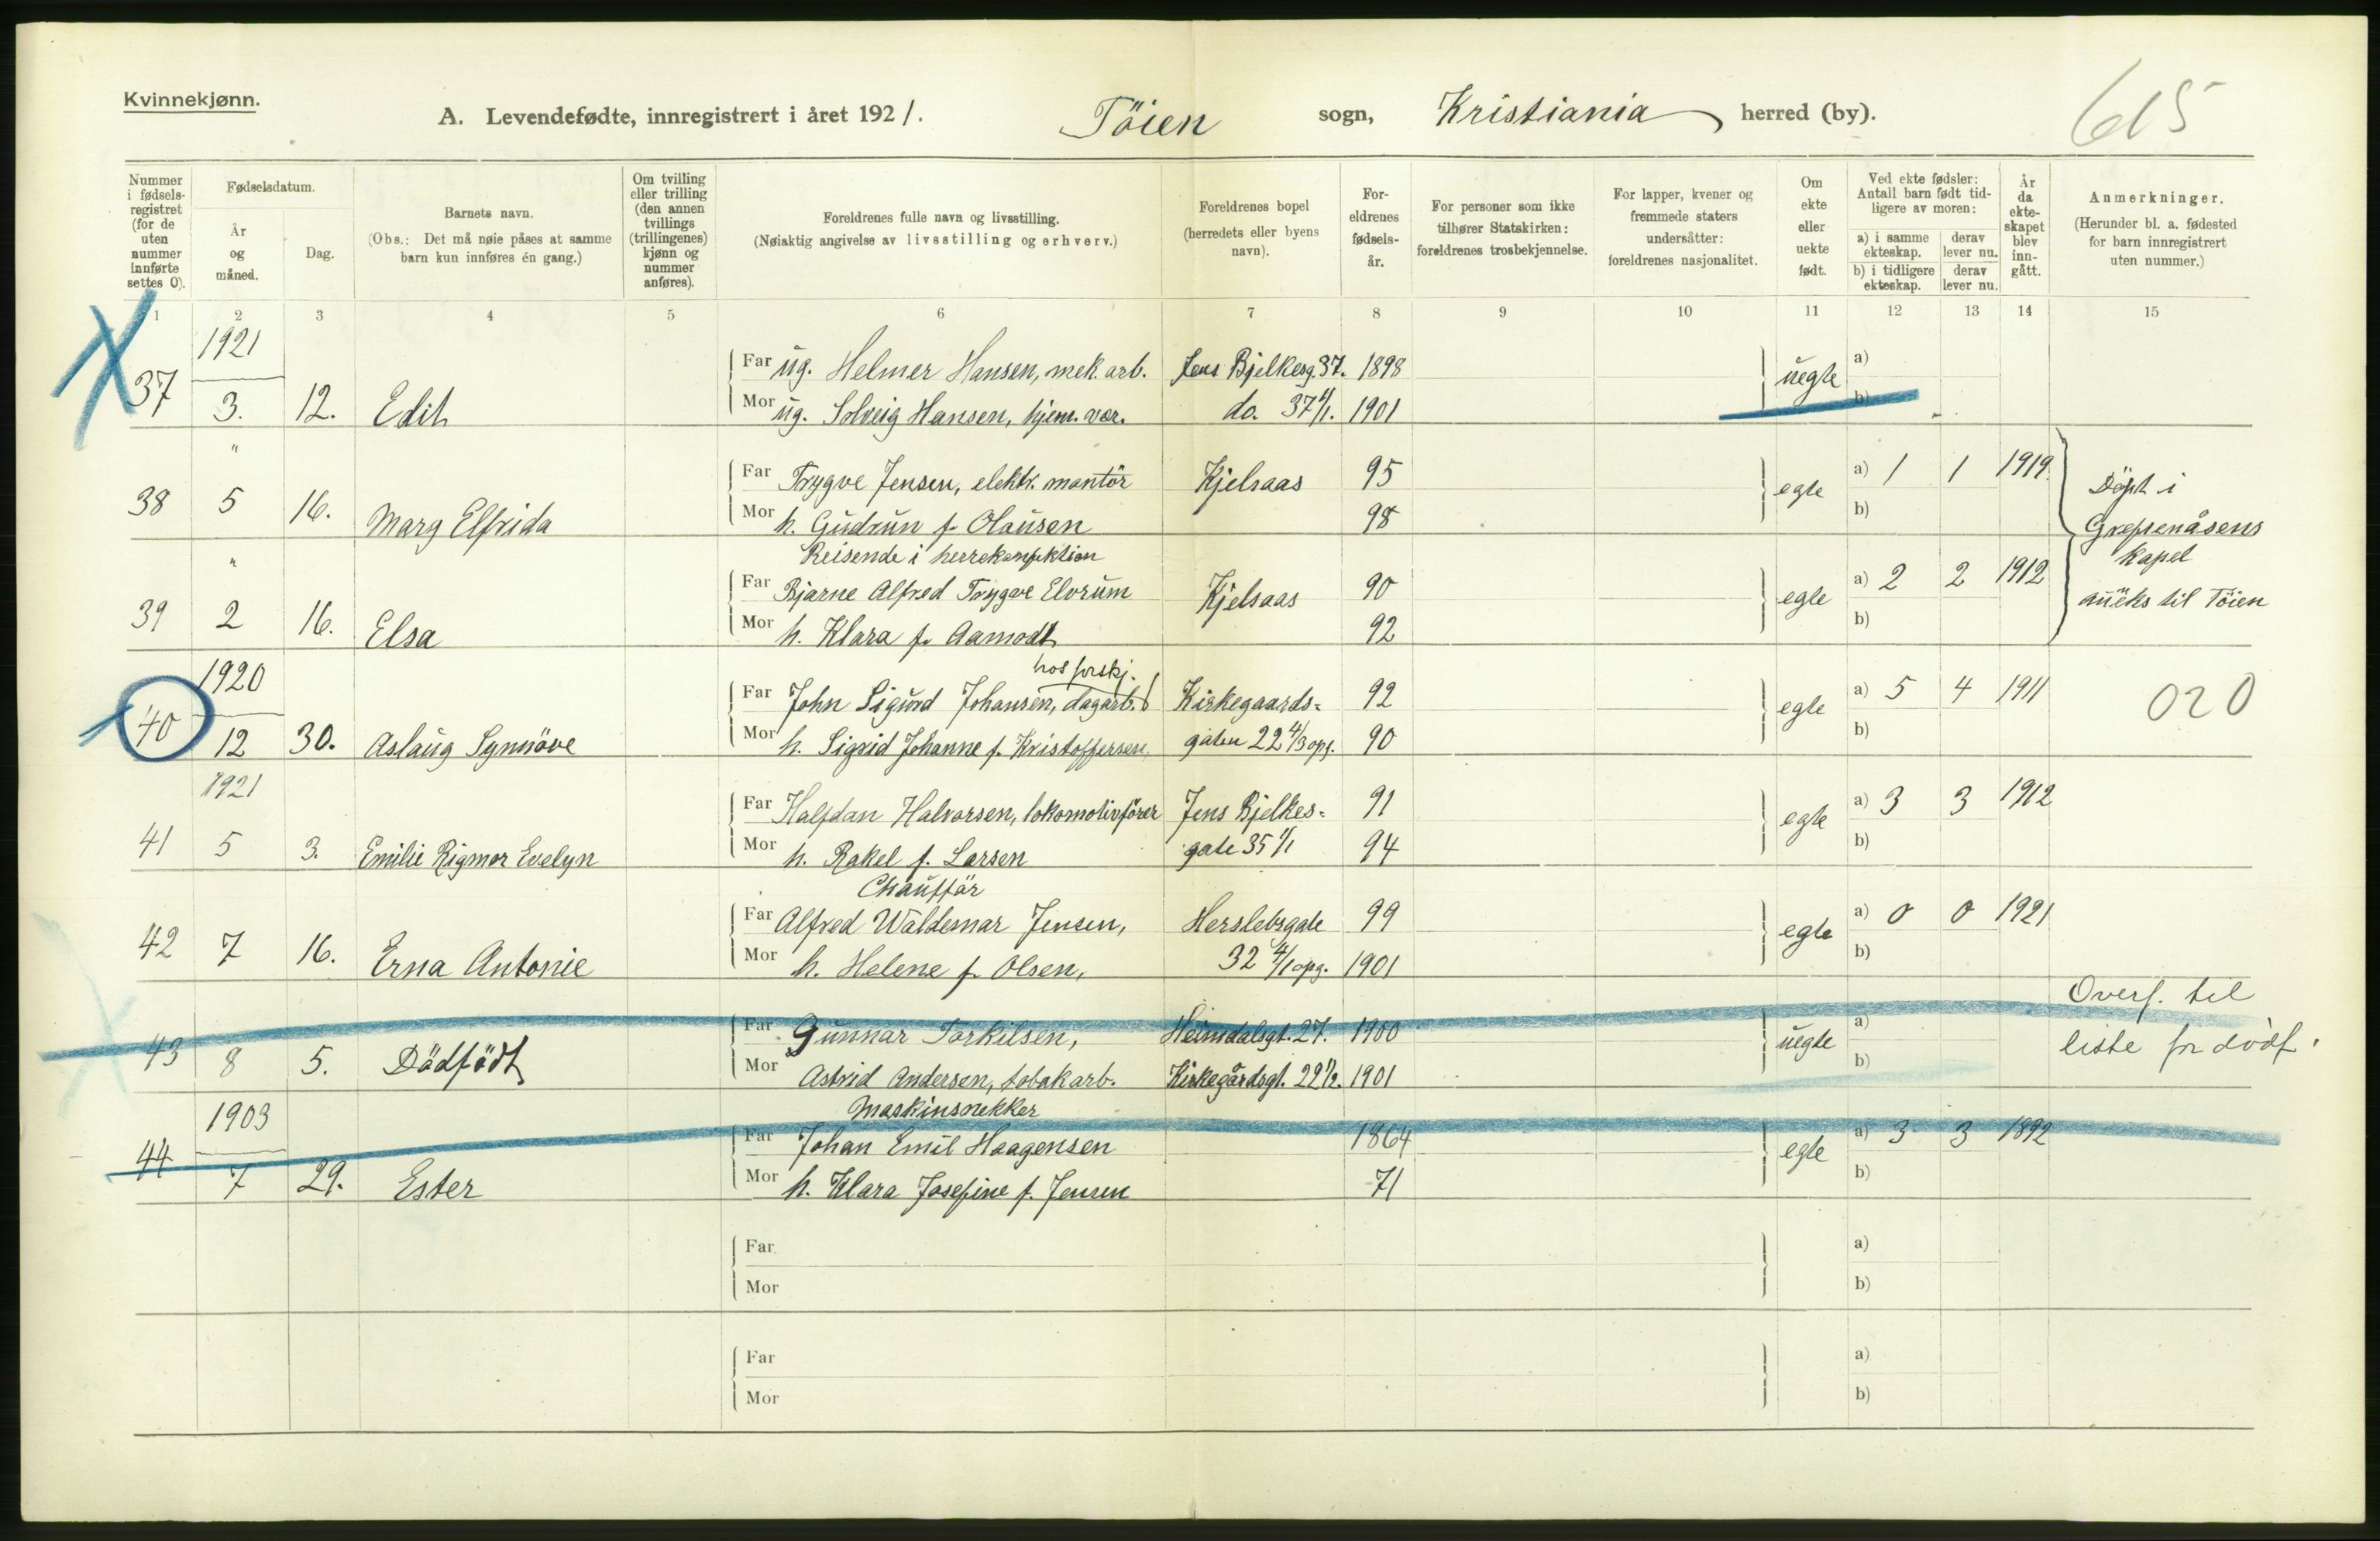 Kvinnekjønn.
A. Levendefødte, innregistrert i året 1921. Töien sogn, Kristiania herred (by). 615
Nummer i fødsels-registret (for de uten nummer innførte settes 0).
Fødselsdatum.
År og måned.
Dag.
Barnets navn.
(Obs.: Det må nøie påses at samme barn kun innføres én gang.)
Om tvilling eller trilling (den annen tvillings (trillingenes) kjønn og nummer anføres).
Foreldrenes fulle navn og livsstilling.
(Nøiaktig angivelse av livsstilling og erhverv.)
Foreldrenes bopel (herredets eller byens navn).
For-eldrenes fødsels-år.
For personer som ikke tilhører Statskirken: foreldrenes trosbekjennelse.
For lapper, kvener og fremmede staters undersåtter: foreldrenes nasjonalitet.
Om ekte eller uekte født.
Ved ekte fødsler: Antall barn født tid-ligere av moren:
a) i samme ekteskap. derav lever nu.
b) i tidligere ekteskap. derav lever nu.
År da ekte-skapet blev inn-gått.
Anmerkninger.
(Herunder bl. a. fødested for barn innregistrert uten nummer.)
1 2 3 4 5 6 7 8 9 10 11 12 13 14 15
1921
Far ug. Helmer Hansen, mek. arb. Jens Bjelkesg. 37. 1898 uegte a)
37 3. 12. Edit Mor ug. Solveig Hansen, hjem. vær. do. 37 4/1. 1901 b)
"
Far Trygve Jensen, elektr. montör Kjelsaas 95 egte a) 1 1 1919. Döpt i
38 5 16. Marg Elfrida Mor h. Gudrun f. Olausen 98 b) Grefsenåsens
" Reisende i herrekonfektion kapel
Far Bjarne Alfred Trygve Elvrum Kjelsaas 90 egte a) 2 2 1912 anneks til Töien
39 2 16. Elsa Mor h. Klara f. Aamodt 92 b)
1920 hos forskj.
Far John Sigurd Johansen, dagarb. Kirkegaards- 92 egte a) 5 4 1911 020
40 12 30. Aslaug Synnöve Mor h. Sigrid Johanne f. Kristoffersen. gaten 22 4/3 opg. 90 b)
1921
Far Halfdan Halvorsen, lokomotivförer Jens Bjelkes- 91 egte a) 3 3 1912
41 5 3. Emilie Rigmor Evelyn Mor h. Rakel f. Larsen gate 35 1/1 94 b)
Chauffär
Far Alfred Waldemar Jensen, Herslebsgate 99 egte a) 0 0 1921
42 7 16. Erna Antonie Mor h. Helene f. Olsen, 32 4/1 opg. 1901 b)
Overf. til
Far Gunnar Torkilsen, Heimdalsgt. 27. 1900 uegte a)
43 8 5. Dödfödt Mor Astrid Andersen, tobakarb. Kirkegårdsgt. 22 1/2. 1901 b) liste for dödf.
1903 Maskinsnekker
Far Johan Emil Haagensen 1864 egte a) 3 3 1892
44 7 29. Ester Mor h. Klara Josefine f. Jensen 71 b)
Far a)
Mor b)
Far a)
Mor b)